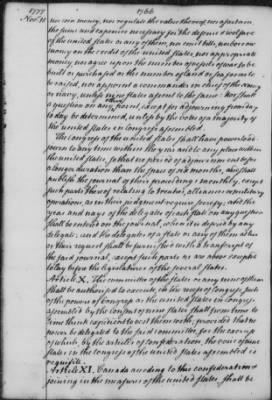 1777
1766
Nov. 11
nor coin money, nor regulate the value thereof, nor ascertain
the sums and expences necessary for the defence & welfare
of the united states or any of them, nor emit bills, nor borrow
money on the credit of the united states, nor appropriate
money, nor agree upon the number of vessels of war, to be
built or purchased or the number of land or sea forces to
be raised, nor appoint a commander in chief of the army
or navy, unless nine states assent to the same: Nor shall
a question on any other point, except for adjourning from day
to day be determined, unless by the votes of a majority of
the united states in congress assembled.
The Congress of the united states shall have power to ad-
journ to any time within the year, and to any place within
the united states, so that no period of adjournment be for
a longer duration than the space of six months, and shall
publish the journal of their proceedings monthly, except
such parts thereof relating to treaties, alliances or military
operations, as in their judgment require secrecy; and the
yeas and nays of the delegates of each state on any question
shall be entered on the journal, when it is desired by any
delegate; and the delegates of a state or any of them at his
or their request shall be furnished with a transcript of
the said journal, except such parts as are above excepted
to lay before the legislatures of the several states.
Article X. The committee of the states or any nine of them
shall be authorized to execute, in the recess of congress, such
of the powers of Congress as the united states in congress
assembled by the consent of nine states, shall from time to
time think expedient to vest them with; provided that no
power be delegated to the said committee, for the exercise
of which, by the articles of confederation, the voice of nine
states in the congress of the united states assembled is
requisite.
Article XI. Canada acceding to this confederation &
joining in the measures of the united states, shall be